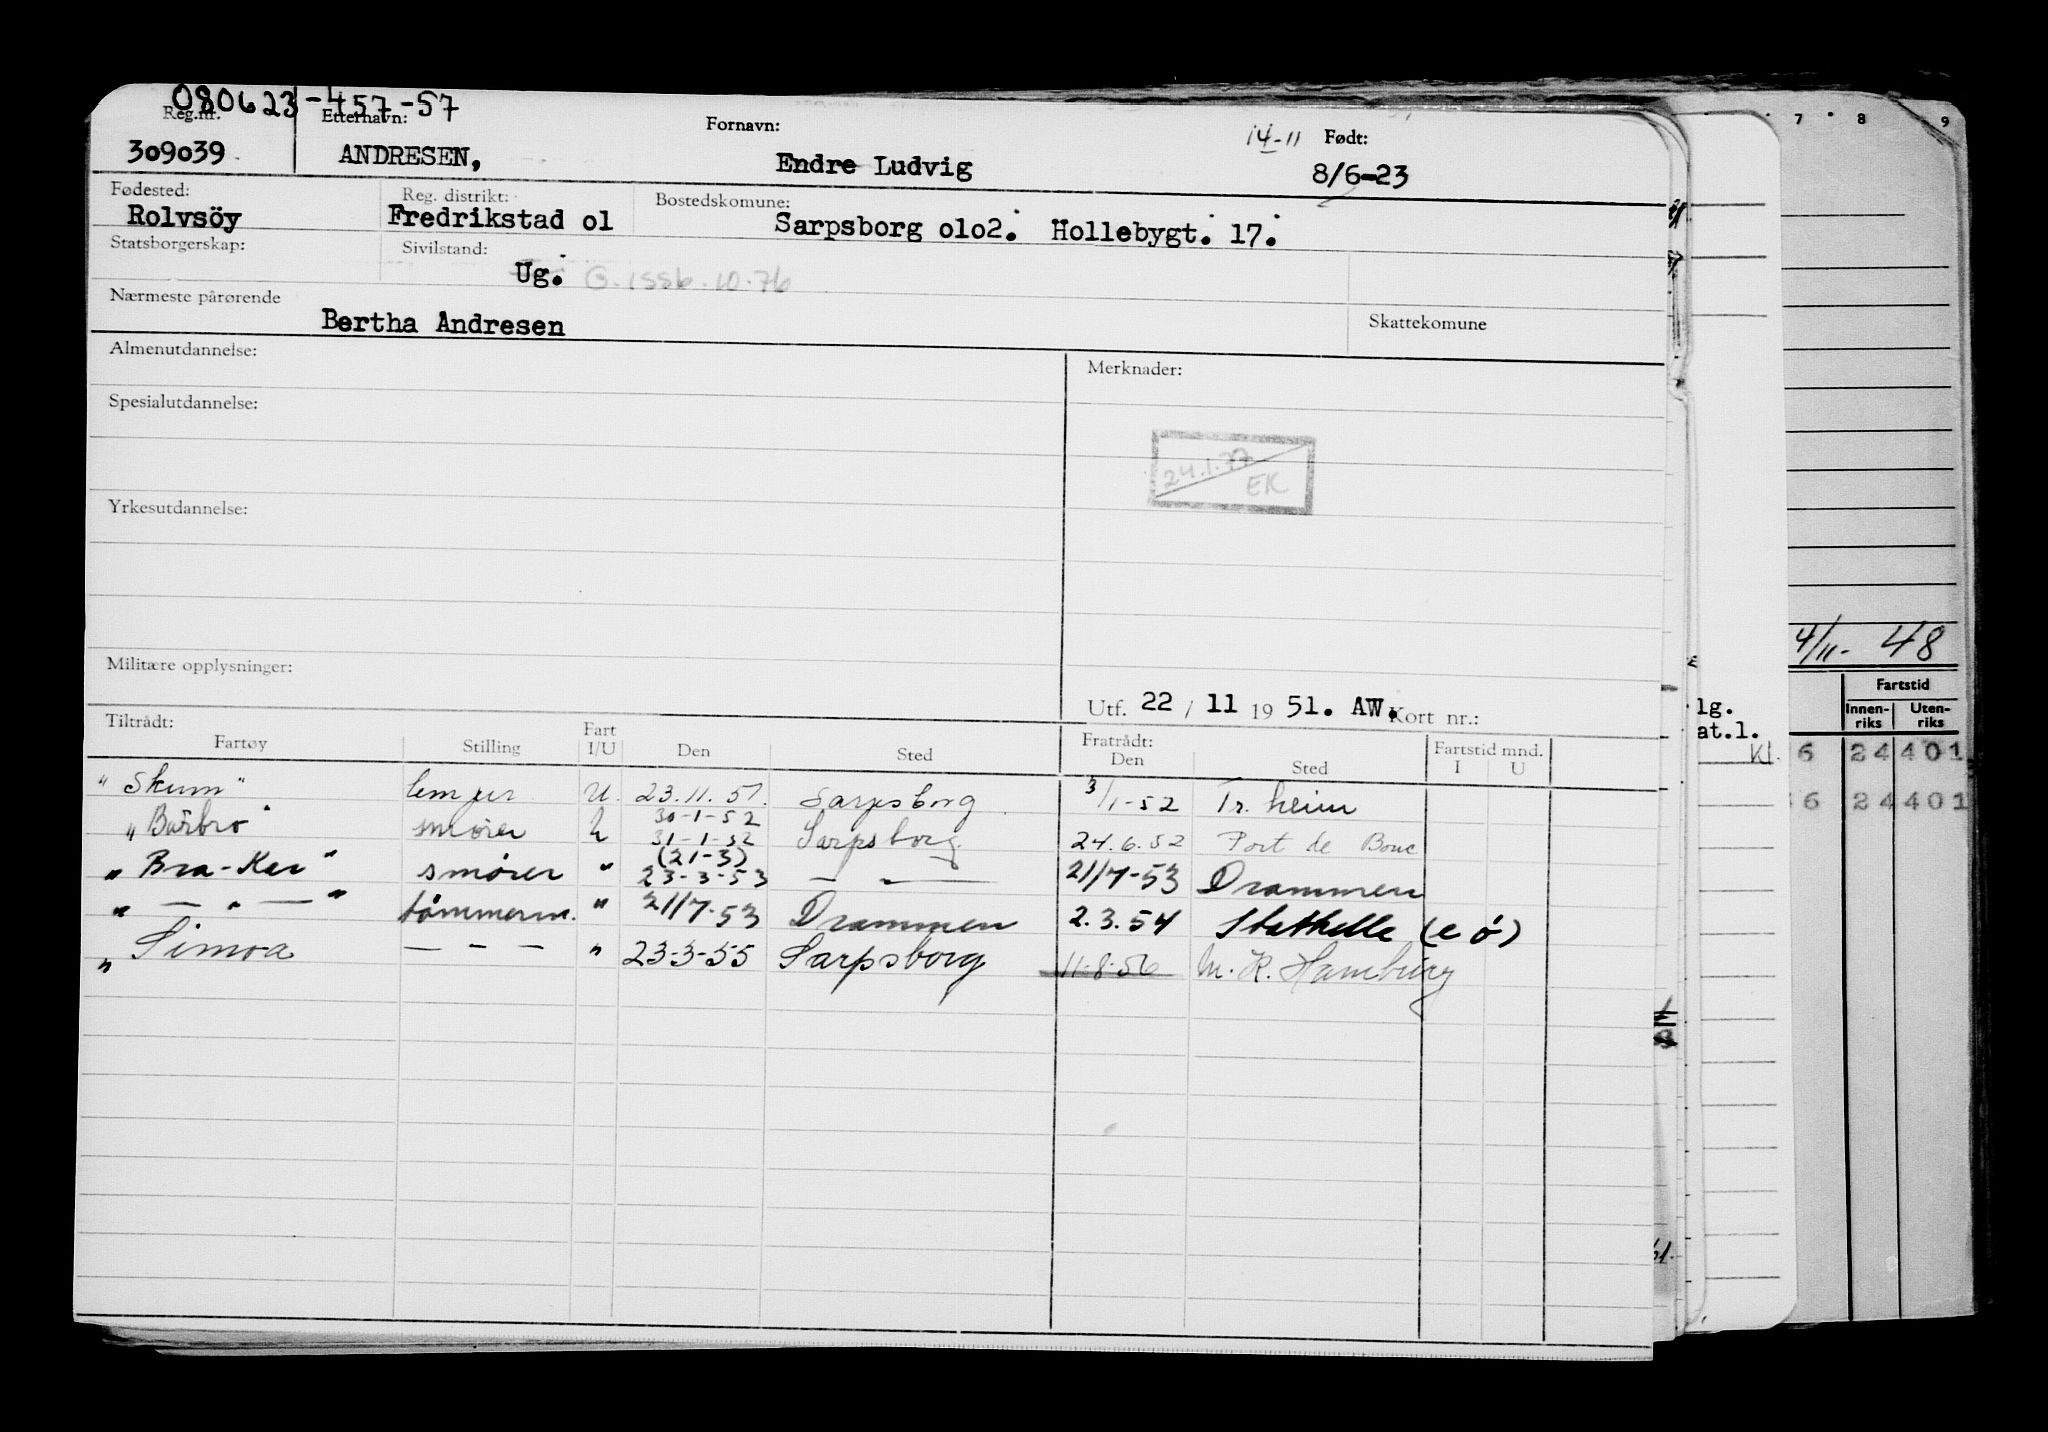 080623-457-57
Reg.nr. Etternavn: Fornavn: 14-11 Født:
309039 ANDRESEN, Endre Ludvig 8/6-23
Fødested: Reg. distrikt: Bostedskomune:
Rolvsöy Fredrikstad o1 Sarpsborg olo2. Hollebygt. 17.
Statsborgerskap: Sivilstand:
Ug. G. 1556.10.76
Nærmeste pårørende
Bertha Andresen Skattekomune
Almenutdannelse: Merknader:
Spesialutdannelse:
24.1.77
EK
Yrkesutdannelse:
Militære opplysninger:
Utf. 22 / 11 19 51. AW. Kort nr.:
Tiltrådt: Fart Fratrådt: Fartstid mnd.
Fartøy Stilling I/U Den Sted Den Sted I U
"Skum" lemper U. 23.11.51. Sarpsborg 3/1-52 Tr.heim
30-1-52
"Barbro" smører U 31-1-52 Sarpsborg 24.6.52 Port de Bouc
(21-3)
"Bra-Kar" smører " 23-3-53 — " — 21/7-53 Drammen
" — " — " tömmerm. " 21/7-53 Drammen 2.3.54 Stathelle (e ö)
" Simoa — - — " 23-3-55 Sarpsborg 11-8-56 M. K. Hamburg
7 8 9
4/11- 48
Fartstid
Innen-riks Uten-riks
lg.
at.l.
Kl. 6 24 401
6 24 401